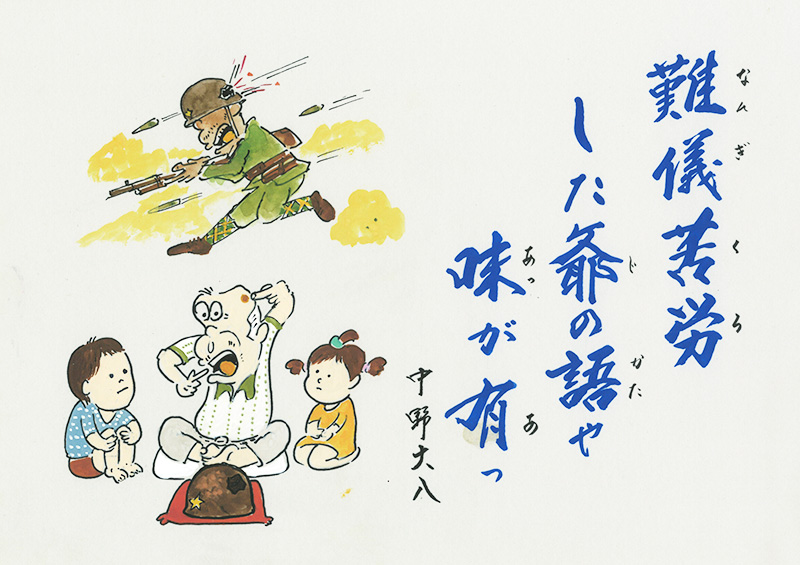 難儀苦労
なんぎくろ
した爺の語や
じかた
味が有っ
あっあ
中野大八